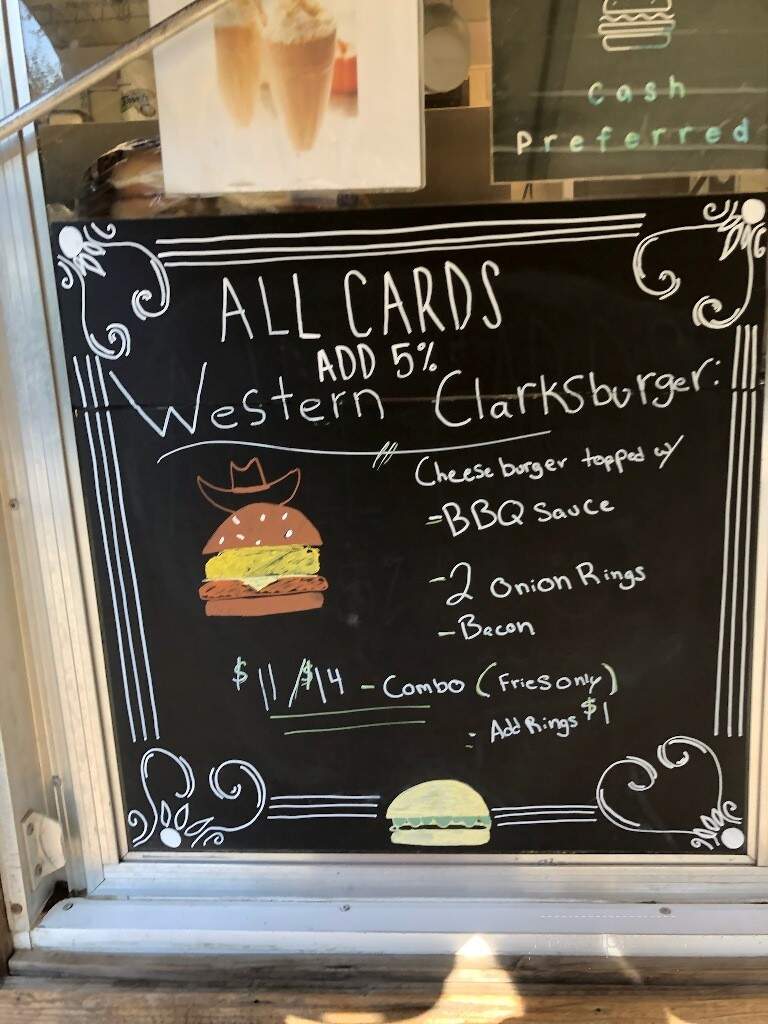 Cash
Preferred
ALL CARDS
ADD 5%
Western Clarksburger:
Cheeseburger topped w/
-BBQ Sauce
-2 Onion Rings
-Bacon
$11/$14 - Combo (Fries only)
- Add Rings $1